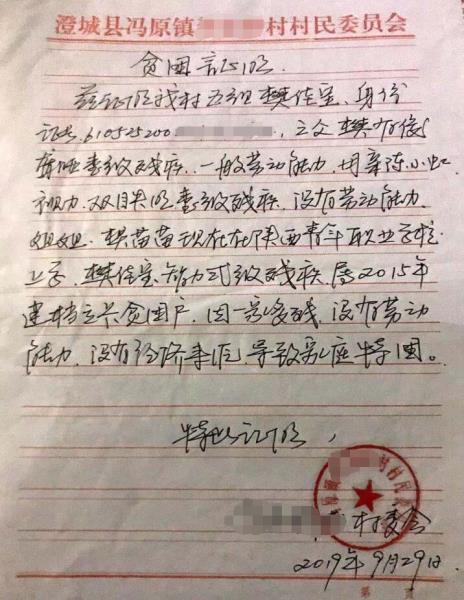 澄城县冯原镇 村村民委员会
贫困证明
兹证明我村五组樊佳宝、身份
证号610525200 ,父亲樊
聋哑壹级残疾、一般劳动能力,母亲陈小
视力、双目失明壹级残疾、没有劳动能力、
姐姐、樊苗苗现在在陕西青年职业学校
上学,樊佳宝、智力弍级残疾、属2015年
建档立卡贫困户,因一家多残,没有劳动
能力、没有经济来源,导致家庭特困。
特此证明,
村委会
2019年9月29日
第 页